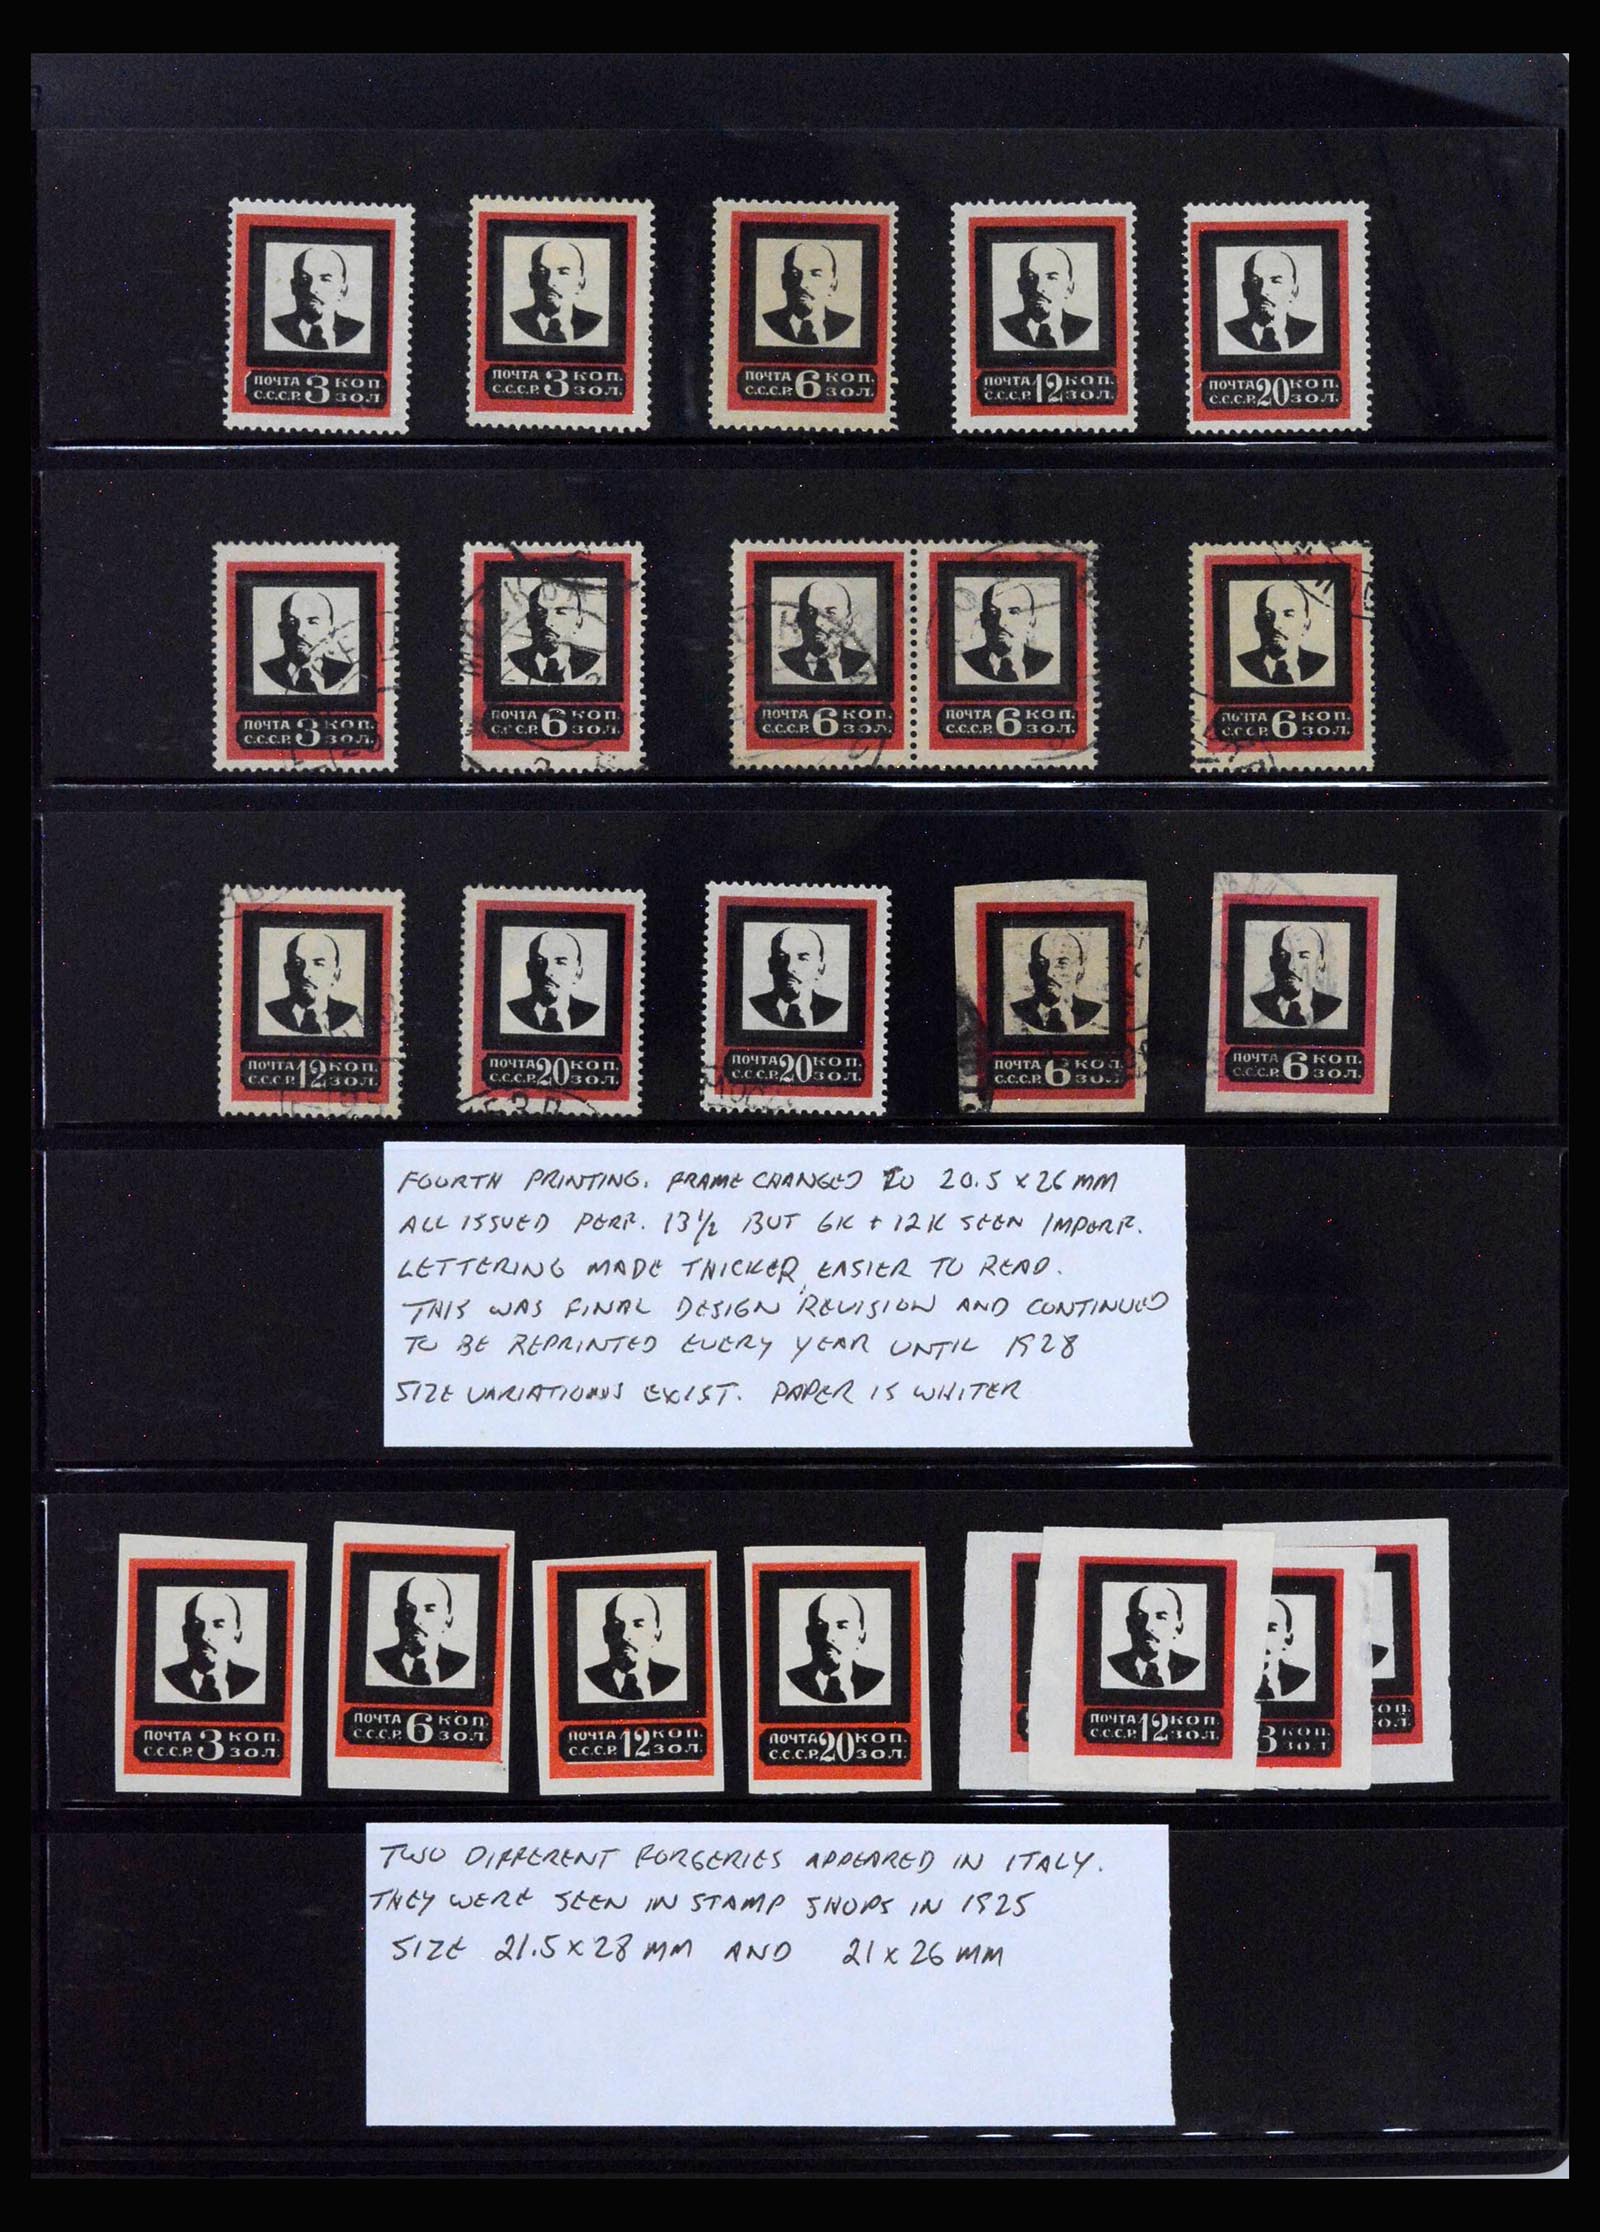 ПОЧТА 3 КОП.
С.С.С.Р. ЗОЛ.
ПОЧТА 3 КОП.
С.С.С.Р. ЗОЛ.
ПОЧТА 6 КОП.
С.С.С.Р. ЗОЛ.
ПОЧТА 12 КОП.
С.С.С.Р. ЗОЛ.
ПОЧТА 20 КОП.
С.С.С.Р. ЗОЛ.
ПОЧТА 3 КОП.
С.С.С.Р. ЗОЛ.
ПОЧТА 6 КОП.
С.С.С.Р. ЗОЛ.
ПОЧТА 6 КОП.
С.С.С.Р. ЗОЛ.
ПОЧТА 6 КОП.
С.С.С.Р. ЗОЛ.
ПОЧТА 6 КОП.
С.С.С.Р. ЗОЛ.
ПОЧТА 12 КОП.
С.С.С.Р. ЗОЛ.
ПОЧТА 20 КОП.
С.С.С.Р. ЗОЛ.
ПОЧТА 20 КОП.
С.С.С.Р. ЗОЛ.
ПОЧТА 6 КОП.
С.С.С.Р. ЗОЛ.
ПОЧТА 6 КОП.
С.С.С.Р. ЗОЛ.
FOURTH PRINTING. FRAME CHANGED TO 20.5 x 26 MM
ALL ISSUED PERF. 13 1/2 BUT 6K + 12K SEEN IMPERF.
LETTERING MADE THICKER, EASIER TO READ.
THIS WAS FINAL DESIGN REVISION AND CONTINUED
TO BE REPRINTED EVERY YEAR UNTIL 1928
SIZE VARIATIONS EXIST. PAPER IS WHITER
ПОЧТА 3 КОП.
С.С.С.Р. ЗОЛ.
ПОЧТА 6 КОП.
С.С.С.Р. ЗОЛ.
ПОЧТА 12 КОП.
С.С.С.Р. ЗОЛ.
ПОЧТА 20 КОП.
С.С.С.Р. ЗОЛ.
ПОЧТА 12 КОП.
С.С.С.Р. ЗОЛ.
3 КОП.
ЗОЛ.
TWO DIFFERENT FORGERIES APPEARED IN ITALY.
THEY WERE SEEN IN STAMP SHOPS IN 1925
SIZE 21.5 x 28 MM AND 21 x 26 MM